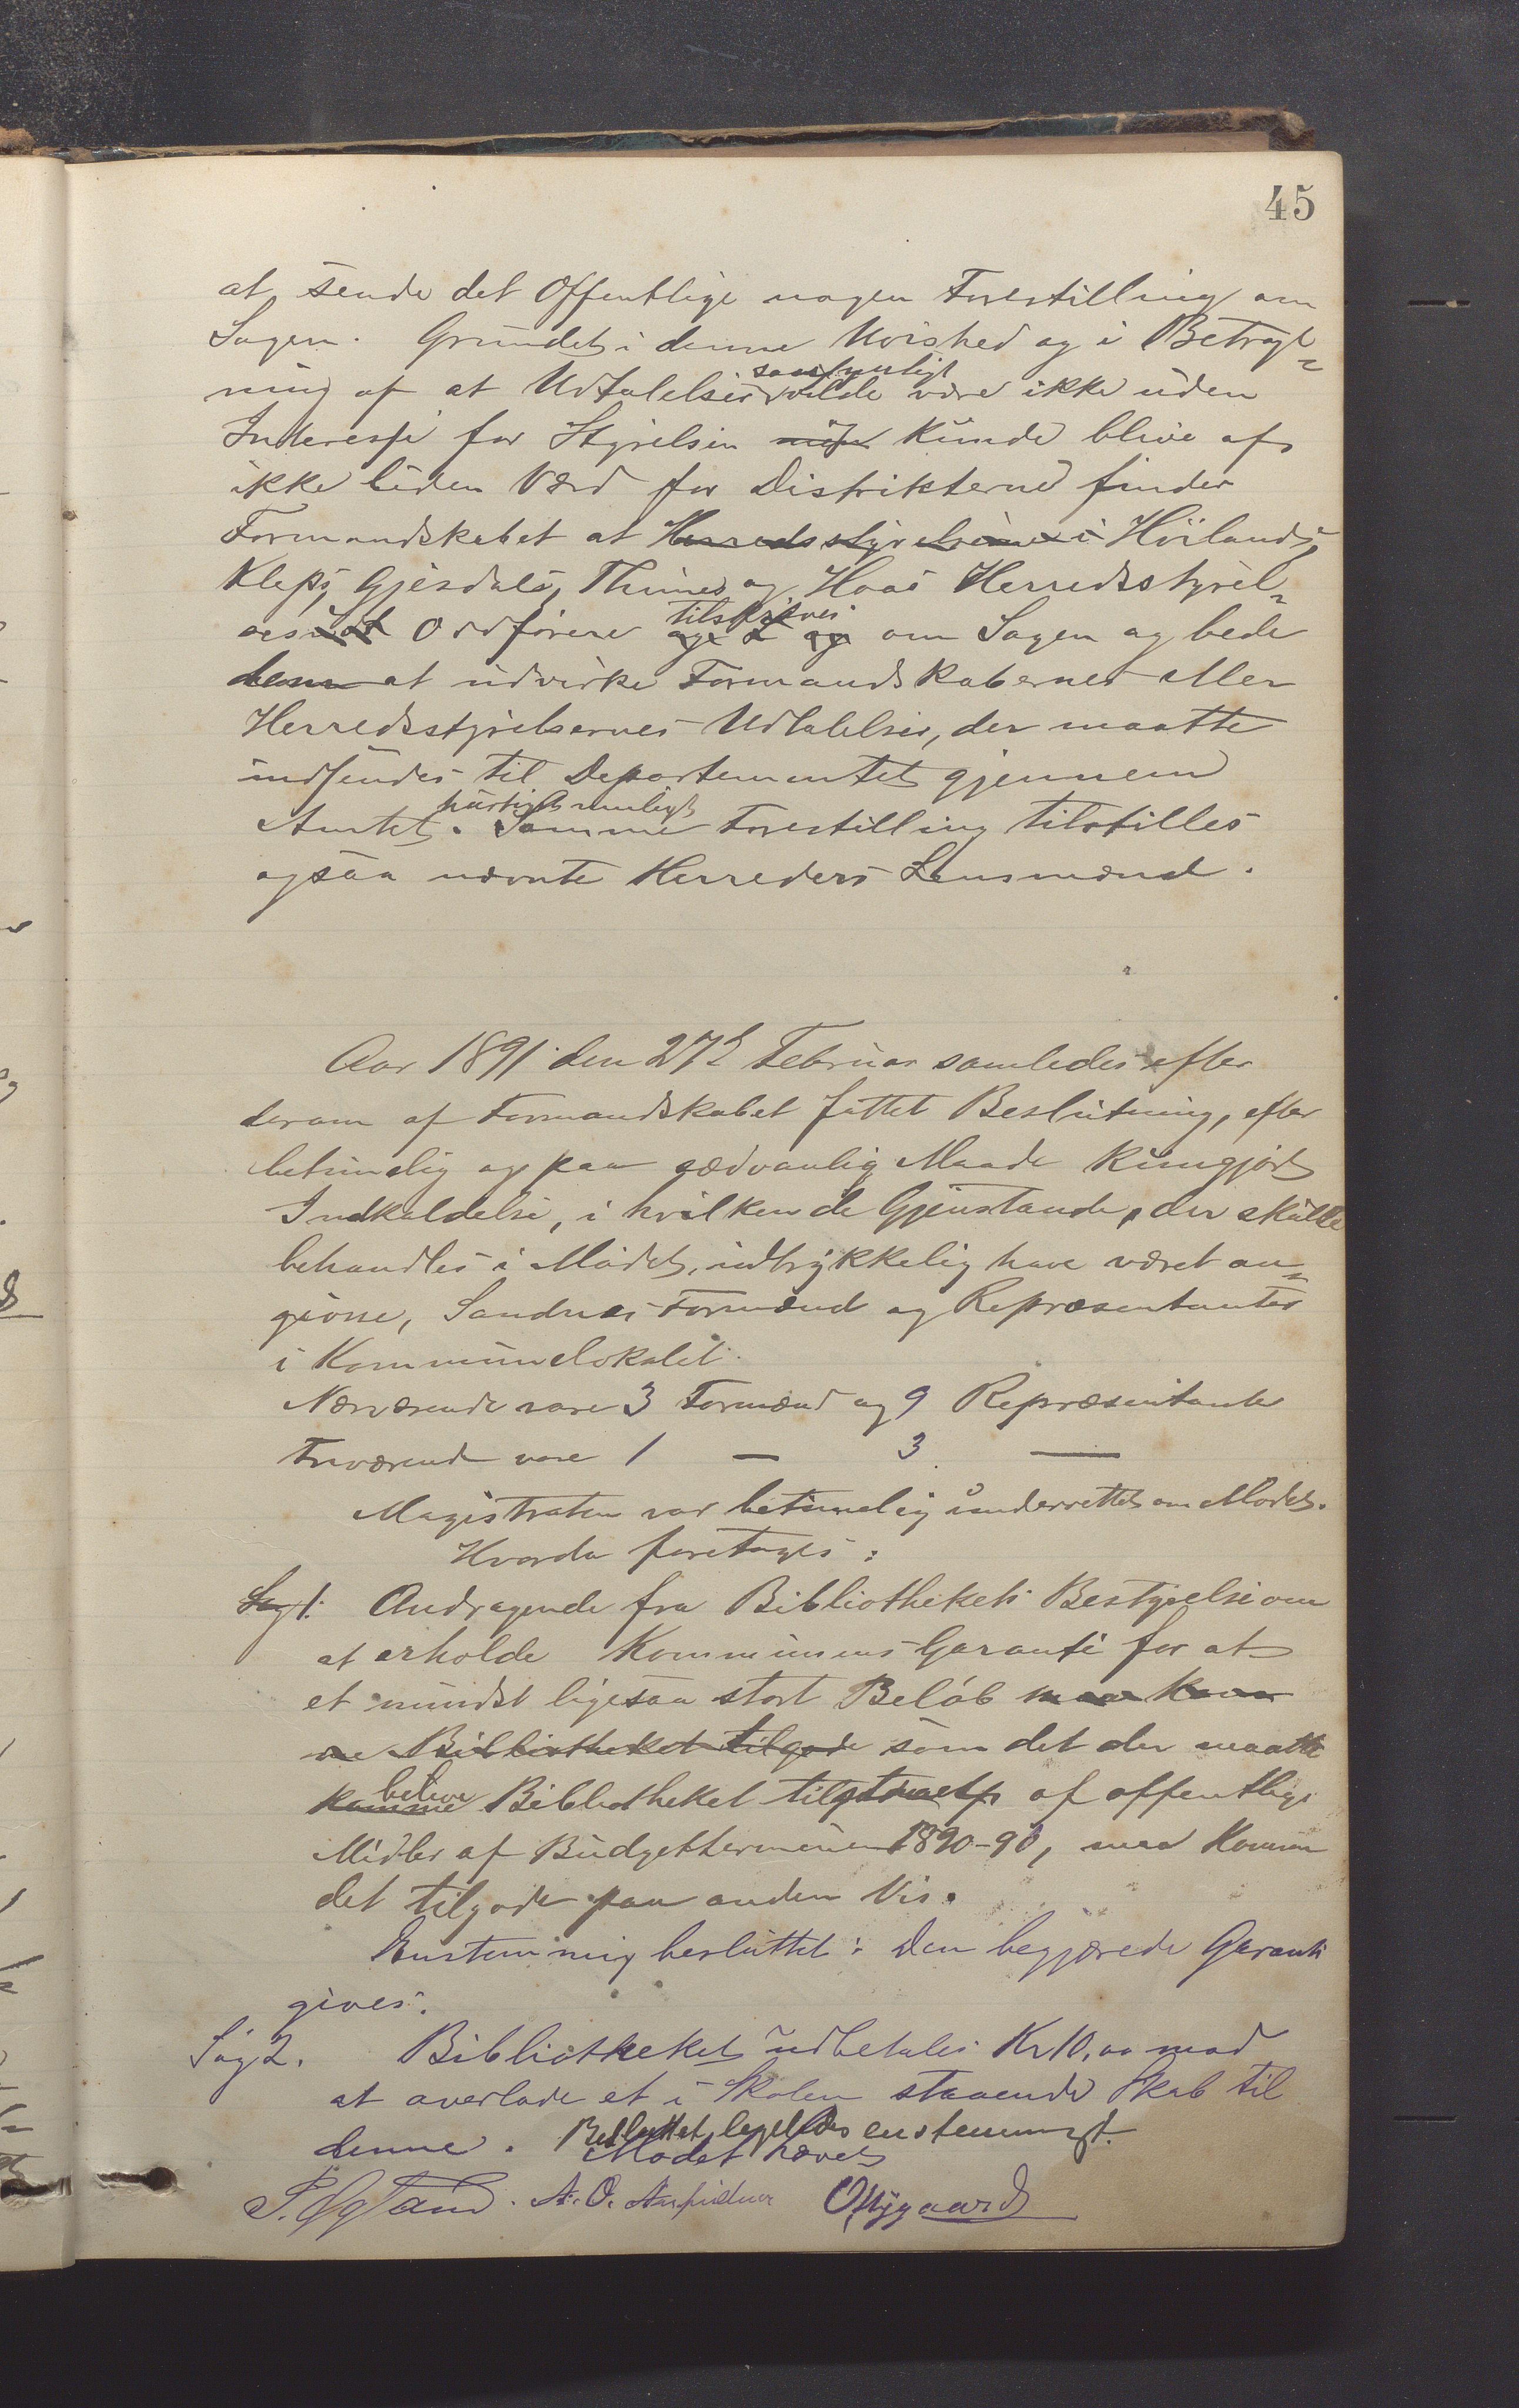 45
at sende det Offentlige nogen Forestilling om
Sagen. Grundet i denne Uvished og i Betragt=
ning af at Udtalelser sandsynligt vilde være ikke uden
Interesse for Styrelsen kunde blive af
ikke liden Værd for Distrikterne finder
Formandskabet at Herredsstyrelserne i Höilands,
Kleps, Gjesdals, Thimes og Haas Herredsstyrel=
ses Ordförere tilskrives om Sagen og bede
dem at udvirke Formandskabernes eller
Herredsstyrelsernes Udtalelser, der maatte
indsendes til Departementet gjennem
Amtet hurtigst muligt. Samme Forestilling tilstilles
ogsaa nævnte Herreders Lensmænd.
Aar 1891 den 27de Februar samledes efter
derom af Formandskabet fattet Beslutning, efter
betimelig og paa sædvanlig Maade kungjort
Indkaldelse, i hvilken de Gjenstande, der skulle
behandles i Mödet, udtrykkelig have været an=
givne, Sandnes Formænd og Repræsentanter
i Kommunelokalet.
Nærværende vare 3 Formænd og 9 Repræsentanter
Fraværende vare 1 — 3 —
Magistraten var betimelig underrettet om Mödet.
Hvorda foretoges:
Sag 1. Andragende fra Bibliothekets Bestyrelse om
at erholde Kommunens Garanti for at
et mindst ligesaa stort Belöb maa kom
me Bibliotheket tilgode som det der maatte
komme blive Bibliotheket tilstaaet af offentlige
Midler af Budgetterminen 1890-91, maa komme
det tilgode paa anden Vis.
Enstemmig besluttet: Den begjærede Garanti
gives.
Sag 2. Bibliotheket udbetales Kr 10,00 mod
at overlade et i Skolen staaende Skab til
denne. Besluttet ligeledes enstemmigt.
Mödet hævet
A. O.